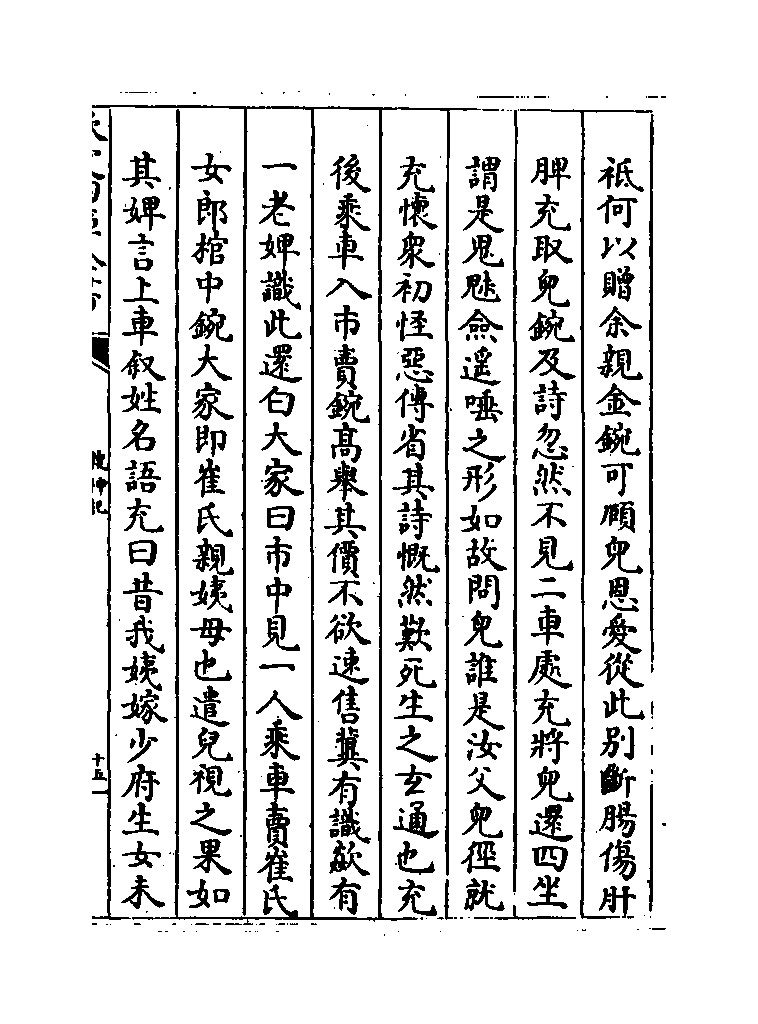 祗何以贈余親金鋺可頤兒恩愛從此别斷腸傷肝
脾充取兒鋺及詩忽然不見二車處充將兒還四坐
謂是鬼魅僉遥唾之形如故問兒誰是汝父兒徑就
充懷衆初怪惡傳省其詩慨然歎死生之玄通也充
後乘車入市賣鋺髙舉其價不欲速售冀有識欻有
一老婢識此還白大家曰市中見一人乘車賣崔氏
女郎棺中鋺大家即崔氏親姨母也遣兒視之果如
其婢言上車叙姓名語充曰昔我姨嫁少府生女未
搜神記
十五